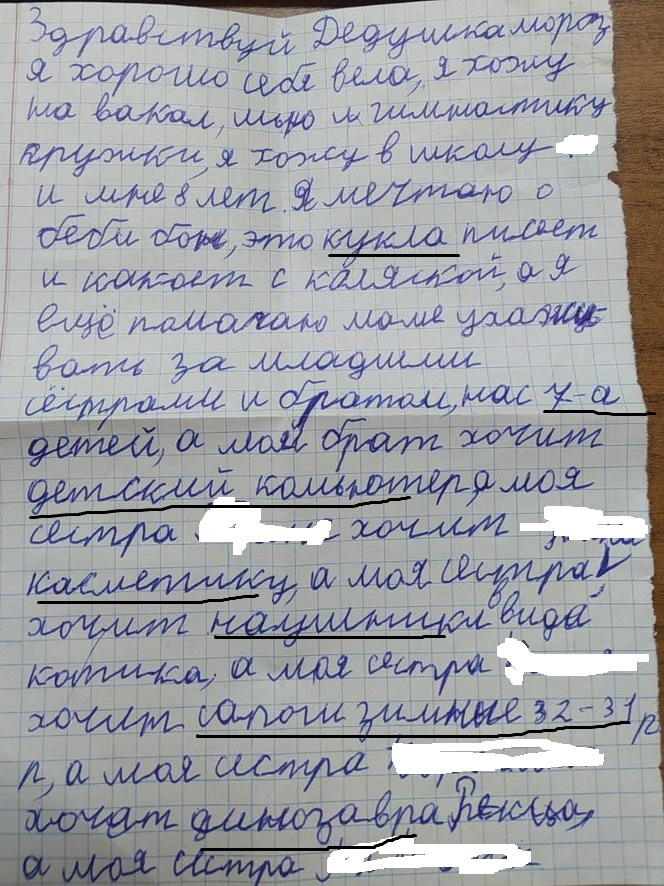 Здравствуй Дедушка мороз
я хорошо себя вела, я хожу
на вакал, ИЗО и гимнастику
кружки, я хожу в школу
и мне 8 лет. Я мечтаю о
беби бон, это кукла писает
и какает с коляской, а я
ещё помагаю маме ухажи-
вать за младшими
сёстрами и братом, нас 7-а
детей, а мой брат хочит
детский компютер, а моя
сестра хочит
касметику, а моя сестра
хочит наушники в виде
котика, а моя сестра
хочит сапоги зимные 32-31 р
р, а моя сестра
хочат динозавра Рекца,
а моя сестра